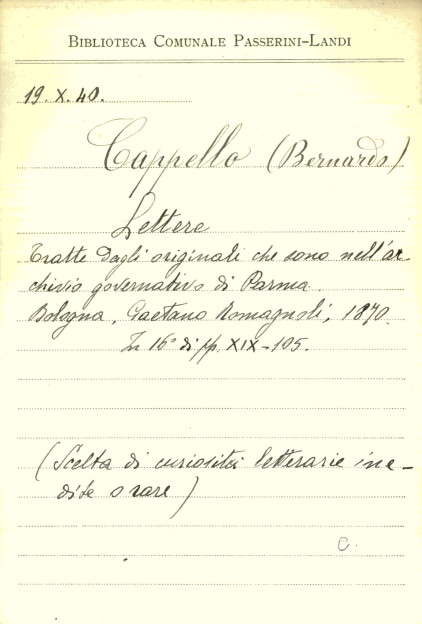 BIBLIOTECA COMUNALE PASSERINI-LANDI
19.X.40.
Cappello (Bernardo)
Lettere
tratte dagli originali che sono nell'ar-
chivio governativo di Parma.
Bologna, Gaetano Romagnoli, 1870.
In 16° di pp. XIX-105.
(Scelta di curiosità letterarie ine-
dite o rare)
C.